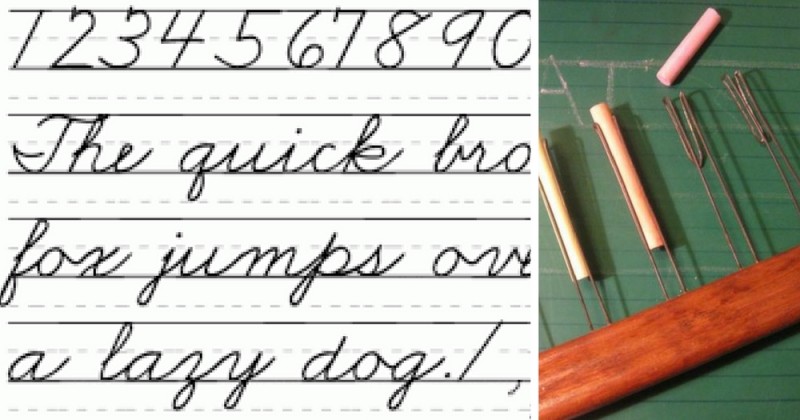 1234567890
The quick bro
fox jumps ove
a lazy dog./,